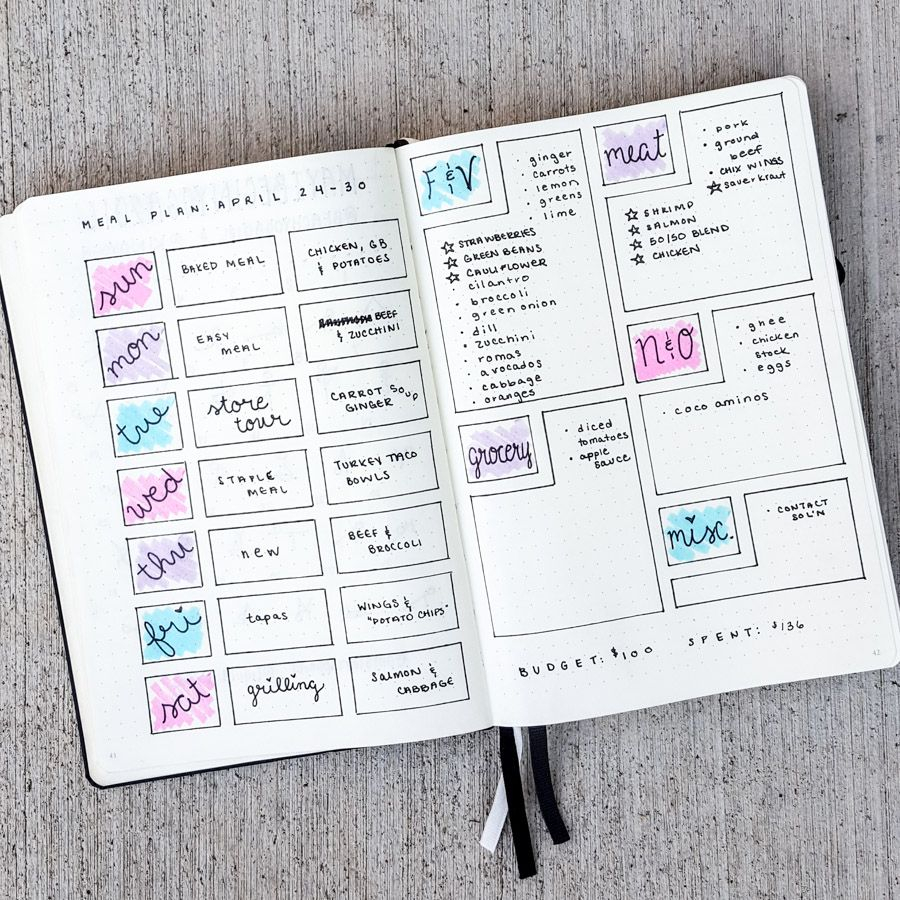 MEAL PLAN: APRIL 24-30
sun
BAKED MEAL
CHICKEN, GB
& POTATOES
mon
EASY
MEAL
BEEF
& ZUCCHINI
tue
store
tour
CARROT SOUP
GINGER
wed
STAPLE
MEAL
TURKEY TACO
BOWLS
thu
new
BEEF &
BROCCOLI
fri
tapas
WINGS &
"POTATO CHIPS"
sat
grilling
SALMON &
CABBAGE
41
F&V
• ginger
• carrots
• lemon
• greens
• lime
☆ STRAWBERRIES
☆ GREEN BEANS
☆ CAULIFLOWER
• cilantro
• broccoli
• green onion
• dill
• zucchini
• romas
• avocados
• cabbage
• oranges
meat
• pork
• ground
beef
• CHIX WINGS
☆ sauerkraut
☆ SHRIMP
☆ SALMON
☆ 50/50 BLEND
☆ CHICKEN
N&O
• ghee
• chicken
stock
• eggs
• coco aminos
grocery
• diced
tomatoes
• apple
sauce
misc.
• CONTACT
SOL'N
BUDGET: $100 SPENT: $136
42